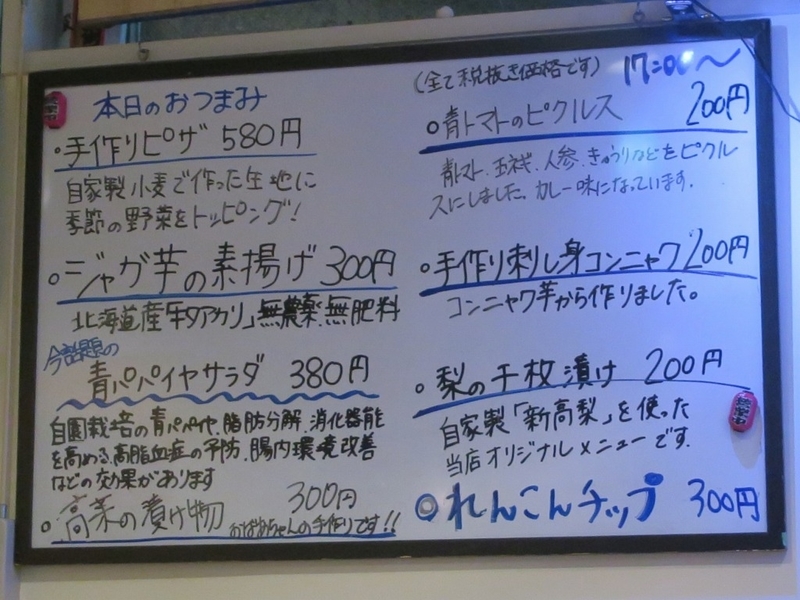 本日のおつまみ
・手作りピザ 580円
自家製小麦で作った生地に
季節の野菜をトッピング!
・ジャガ芋の素揚げ 300円
北海道産「キタアカリ」無農薬.無肥料
今話題の
青パパイヤサラダ 380円
自園栽培の青パパイヤ.脂肪分解.消化器能
を高める.高脂血症の予防.腸内環境改善
などの効果があります
。高菜の漬け物 300円
おばあちゃんの手作りです!!
(全て税抜き価格です) 17:00〜
。青トマトのピクルス 200円
青トマト.玉ネギ.人参.きゅうりなどをピクル
スにしました。カレー味になっています.
・手作り刺し身コンニャク 200円
コンニャク芋から作りました。
・梨の千枚漬け 200円
自家製「新高梨」を使った
当店オリジナルメニューです.
◎れんこんチップ 300円